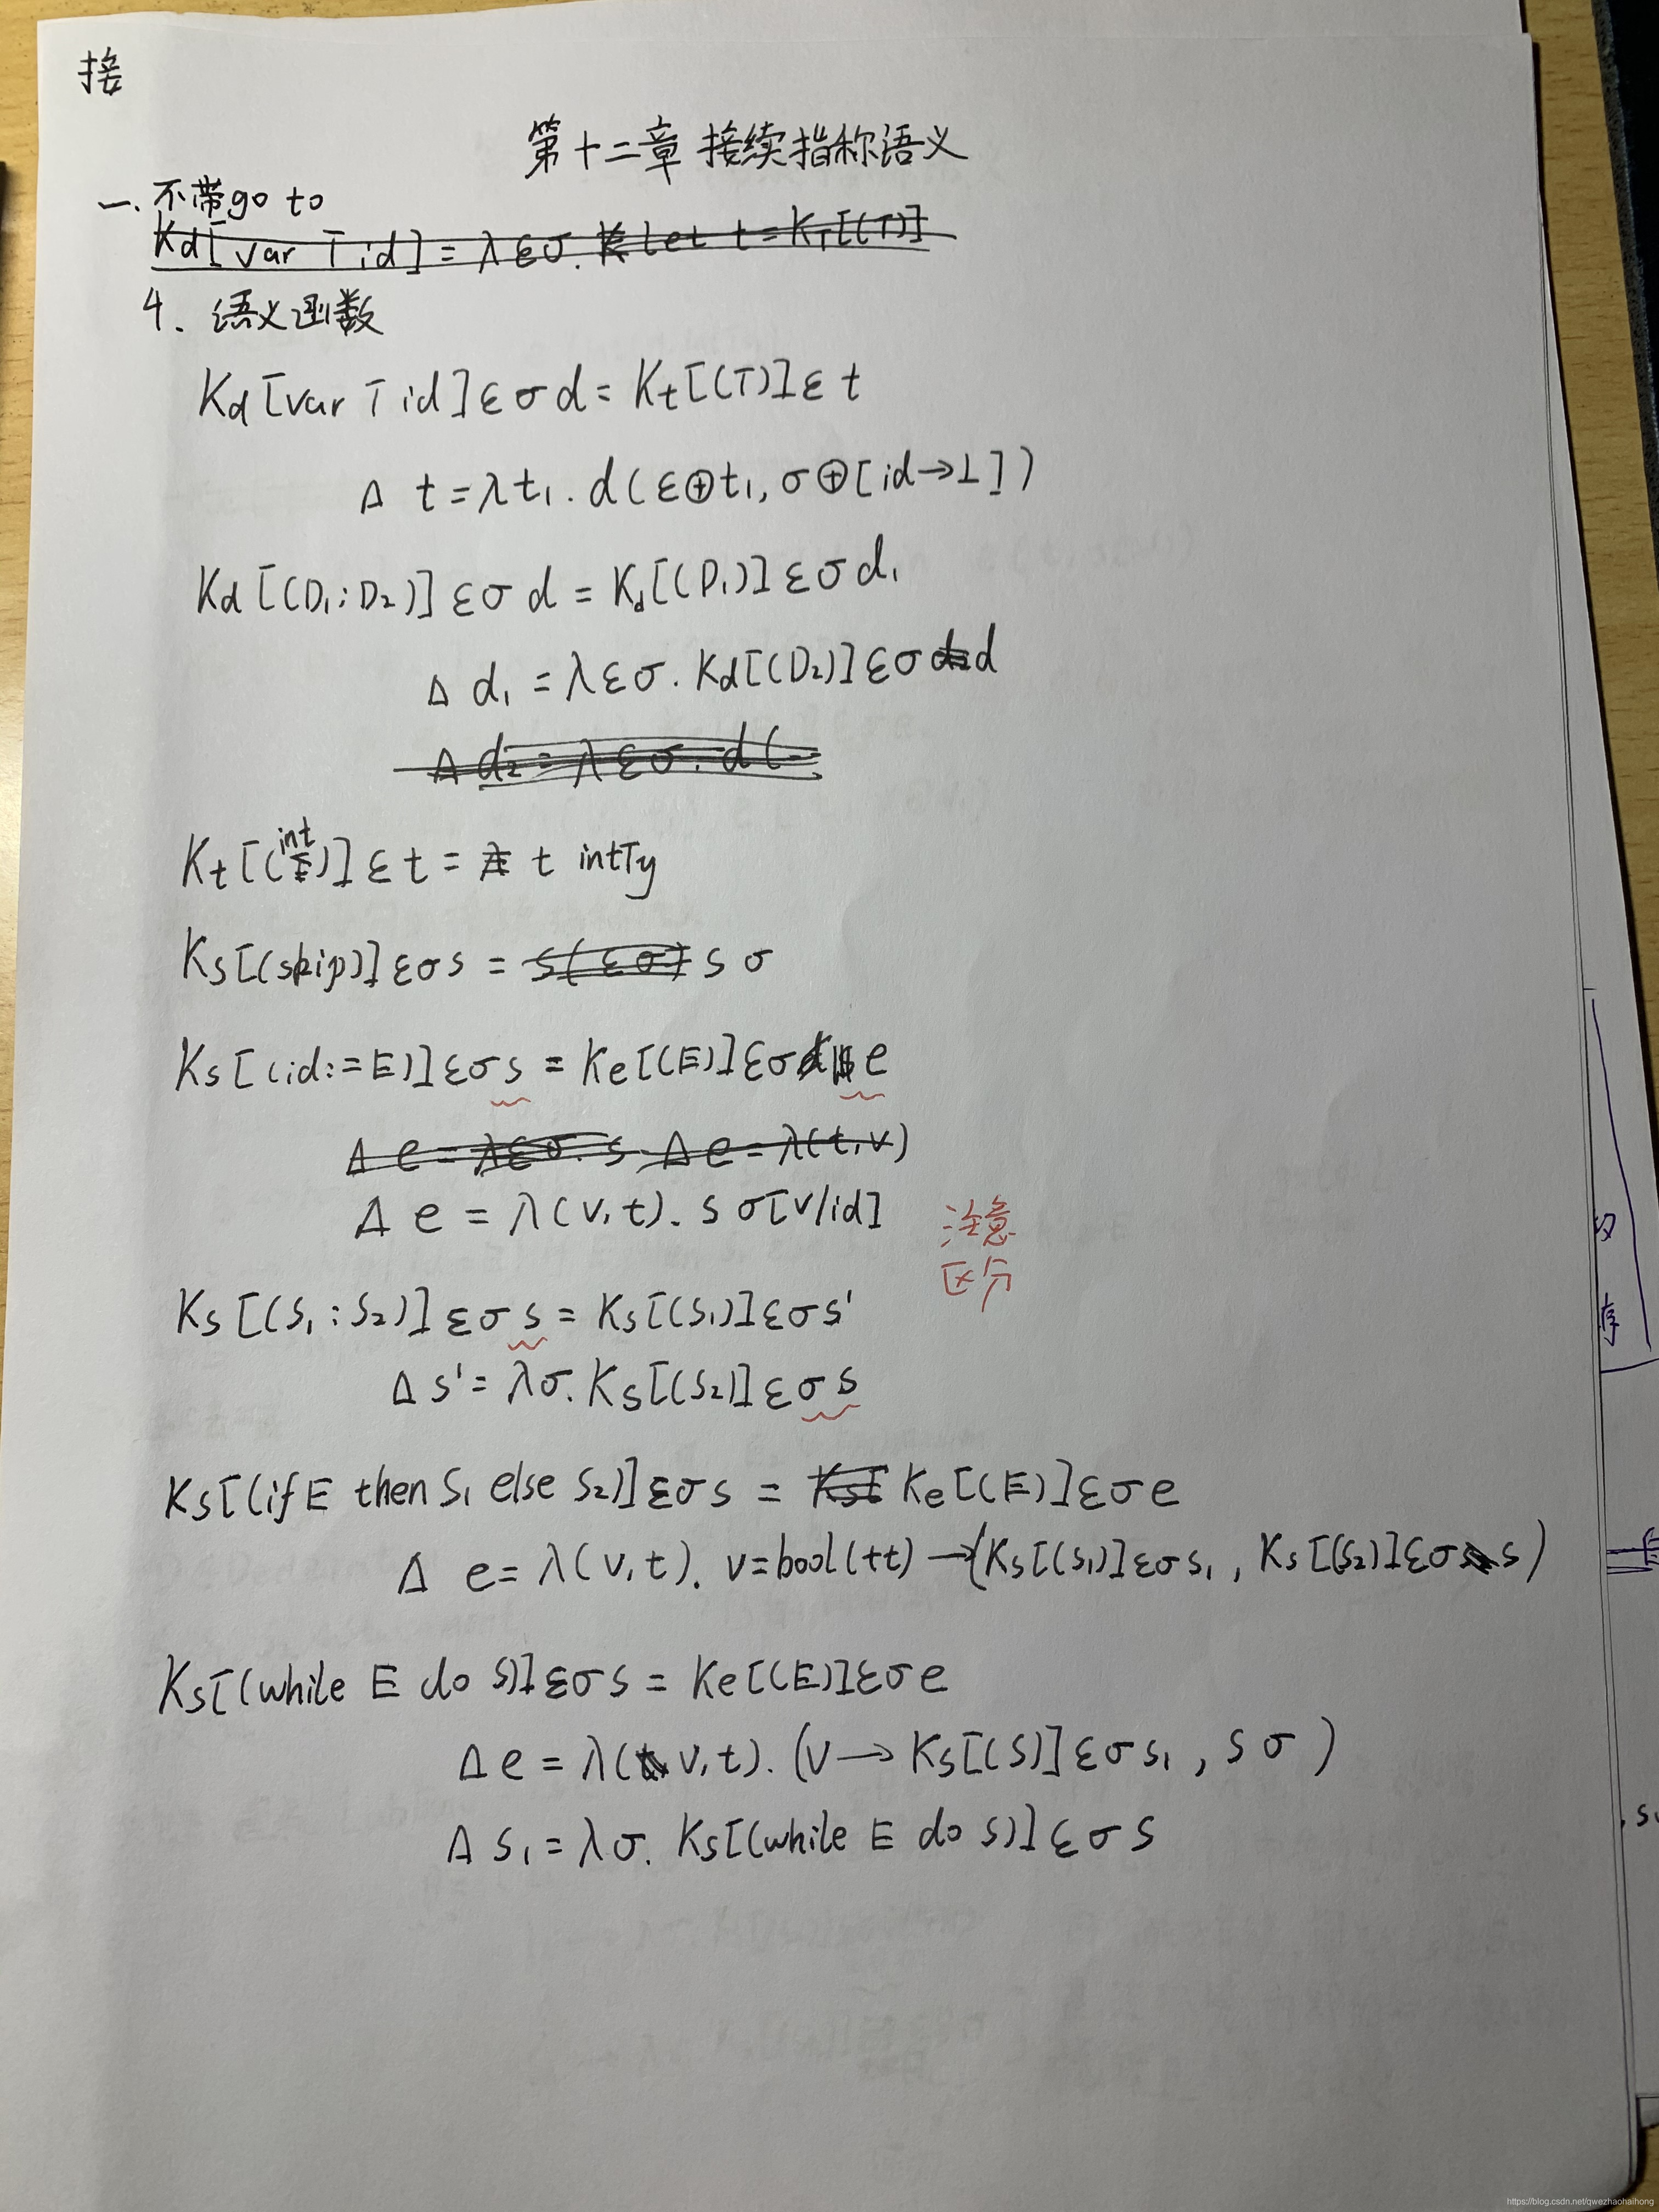 接
第十二章 接续指称语义
一. 不带go to
Kd[var T id] = λεσ. let t = KT[(T)]
4. 语义函数
Kd[var T id]εσd = Kt[(T)]ε t
Δ t = λt₁. d(ε⊕t₁, σ⊕[id→⊥])
Kd[(D₁;D₂)]εσd = Kd[(D₁)]εσd₁
Δ d₁ = λεσ. Kd[(D₂)]εσd
Δ d₂ = λεσ. d(
Kt[(int)]εt = t intTy
Ks[(skip)]εσs = s(εσ) sσ
Ks[(id:=E)]εσs = Ke[(E)]εσe
Δ e = λεσ. s Δ e = λ(t,v)
Δ e = λ(v,t). s σ[v/id]
注意
区分
Ks[(S₁;S₂)]εσs = Ks[(S₁)]εσs'
Δ s' = λσ. Ks[(S₂)]εσs
Ks[(if E then S₁ else S₂)]εσs = Ks[ Ke[(E)]εσe
Δ e = λ(v,t). v=bool(tt)→(Ks[(S₁)]εσs₁, Ks[(S₂)]εσs)
Ks[(while E do S)]εσs = Ke[(E)]εσe
Δ e = λ(v,t). (v→Ks[(S)]εσs₁, sσ)
Δ s₁ = λσ. Ks[(while E do S)]εσs
序
https://blog.csdn.net/qwezhaohaihong